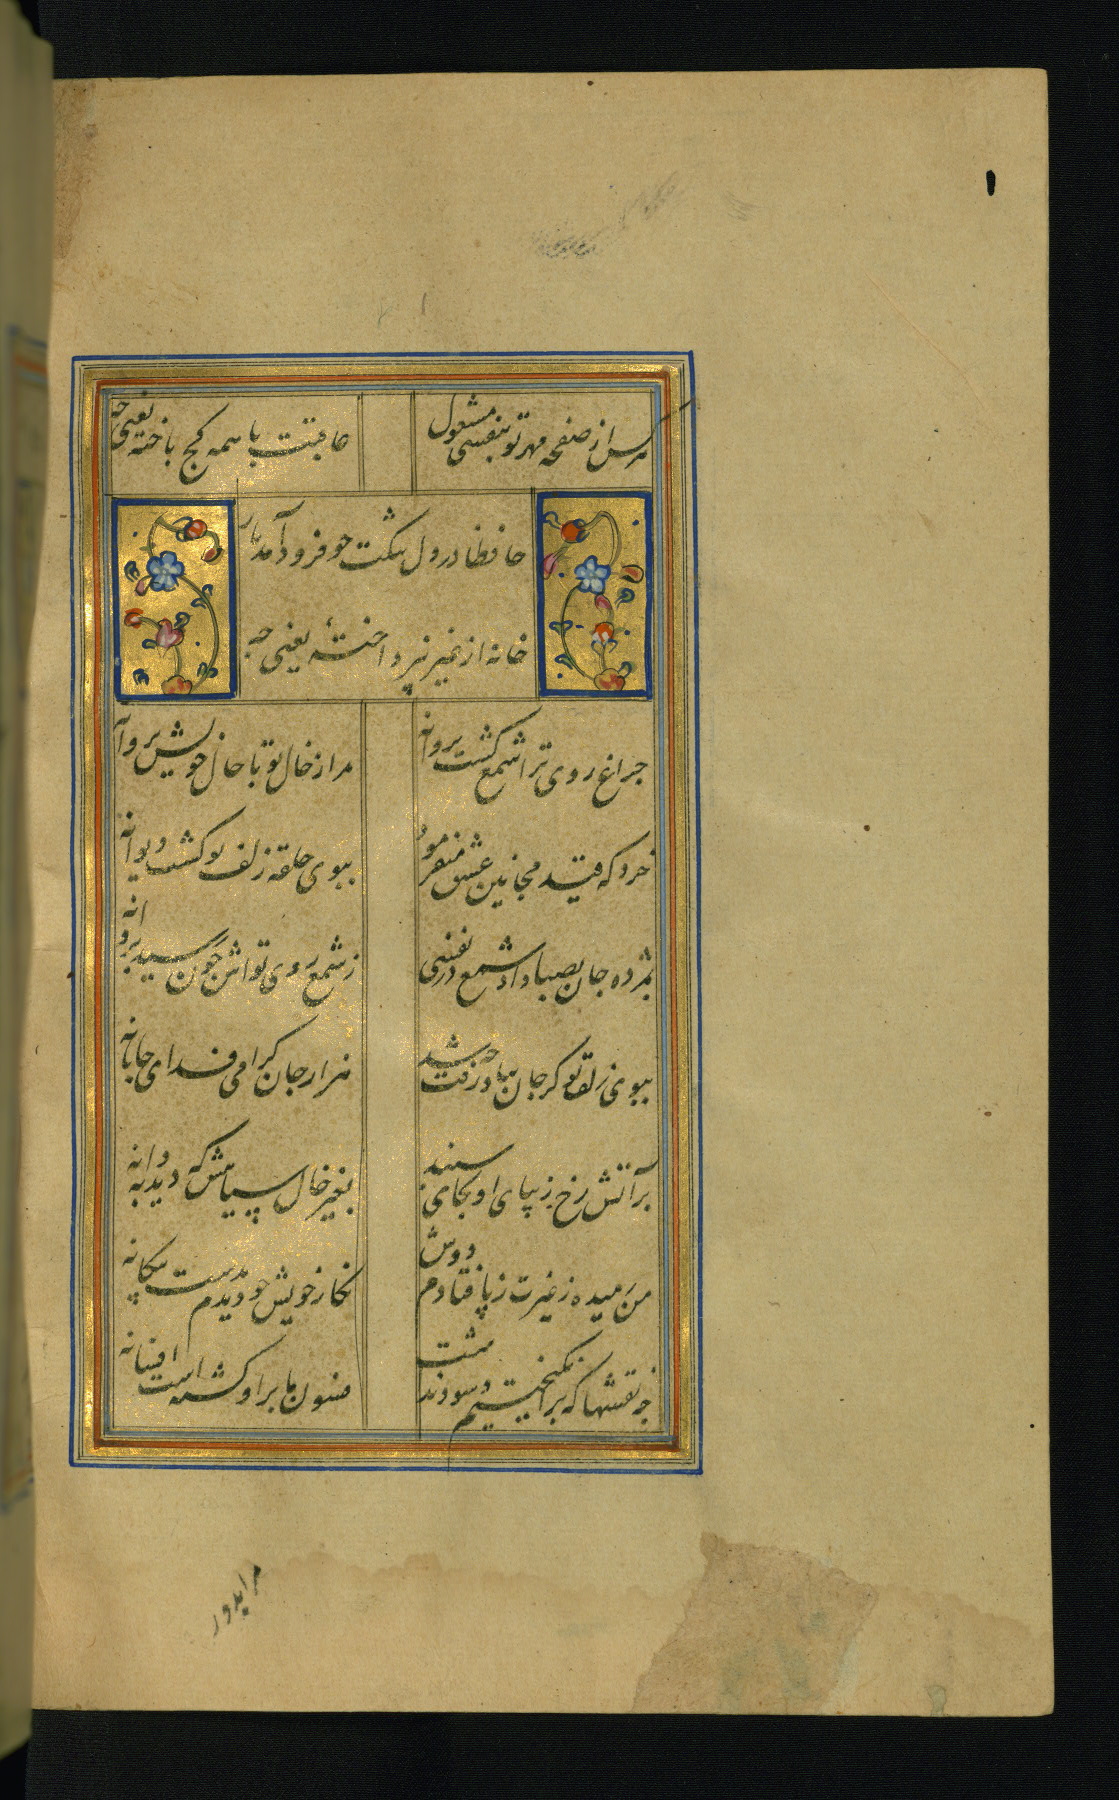 هر کس از صفحه مهر تو بنقشی مشغول
عاقبت با همه کج باختهٔ یعنی چه
حافظا در دل تنگت چو فرود آمد یار
خانه از غیر نپرداختهٔ یعنی چه
چراغ روی ترا شمع کشت پروانه
مرا ز خال تو با حال خویش پروا نه
خرد که قید مجانین عشق میفرمود
ببوی حلقه زلف تو کشت دیوانه
بمژده جان بصبا داد شمع در نفسی
ز شمع روی تواش چون رسید پروانه
ببوی زلف تو کر جان بباد رفت چه شد
هزار جان کرامی فدای جانانه
بر آتش رخ زیبای او بجای سپند
بغیر خال سیاهش که دید به دانه
من رمیده ز غیرت ز پا فتادم دوش
نکار خویش چو دیدم بدست بیکانه
چه نقشها که برانکیختیم و سود نداشت
فسون ما بر او کشته است افسانه